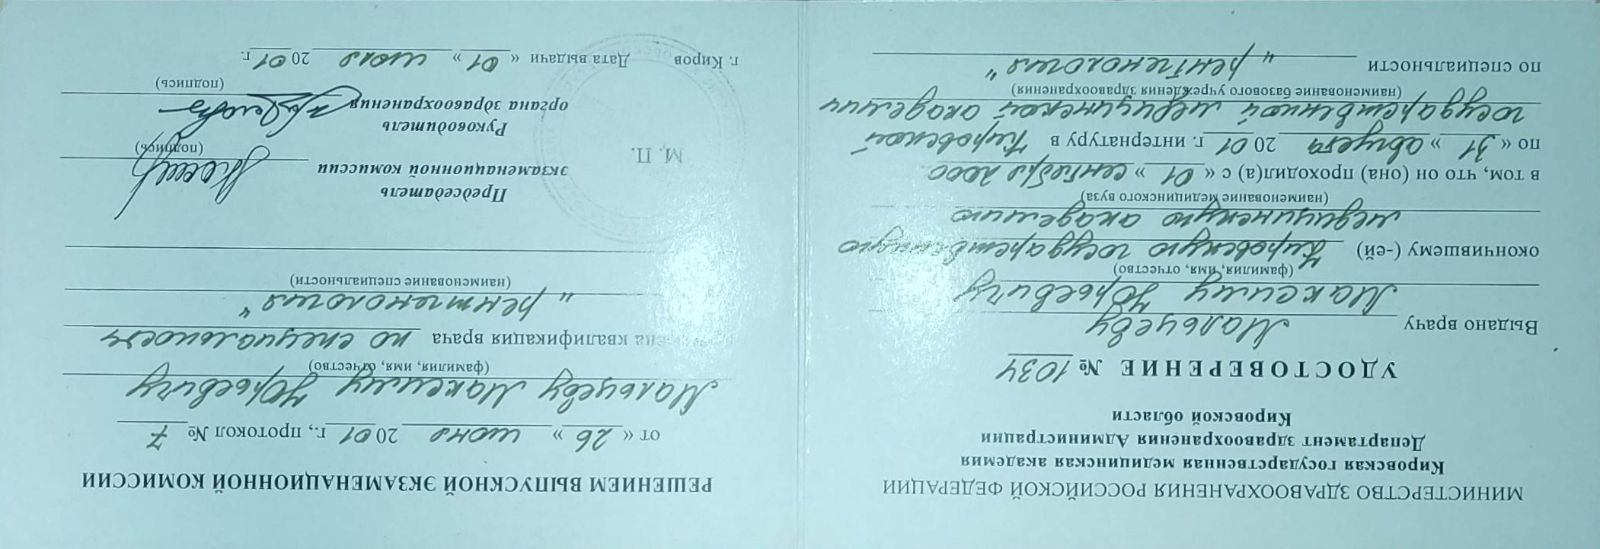 МИНИСТЕРСТВО ЗДРАВООХРАНЕНИЯ РОССИЙСКОЙ ФЕДЕРАЦИИ
Кировская государственная медицинская академия
Департамент здравоохранения Администрации
Кировской области
УДОСТОВЕРЕНИЕ № 1034
Выдано врачу Мальцеву
Максиму Юрьевичу
(фамилия, имя, отчество)
окончившему (-ей) Кировскую государственную
медицинскую академию
(наименование медицинского вуза)
в том, что он (она) проходил(а) с « 01 » сентября 2000
по « 31 » августа 2001 г. интернатуру в Кировской
государственной медицинской академии
(наименование базового учреждения здравоохранения)
по специальности "рентгенология"
РЕШЕНИЕМ ВЫПУСКНОЙ ЭКЗАМЕНАЦИОННОЙ КОМИССИИ
от « 26 » июня 2001 г., протокол № 7
Мальцеву Максиму Юрьевичу
(фамилия, имя, отчество)
квалификация врача по специальности
"рентгенология"
(наименование специальности)
Председатель
экзаменационной комиссии
(подпись)
М. П.
Руководитель
органа здравоохранения
(подпись)
г. Киров Дата выдачи « 01 » июля 2001 г.